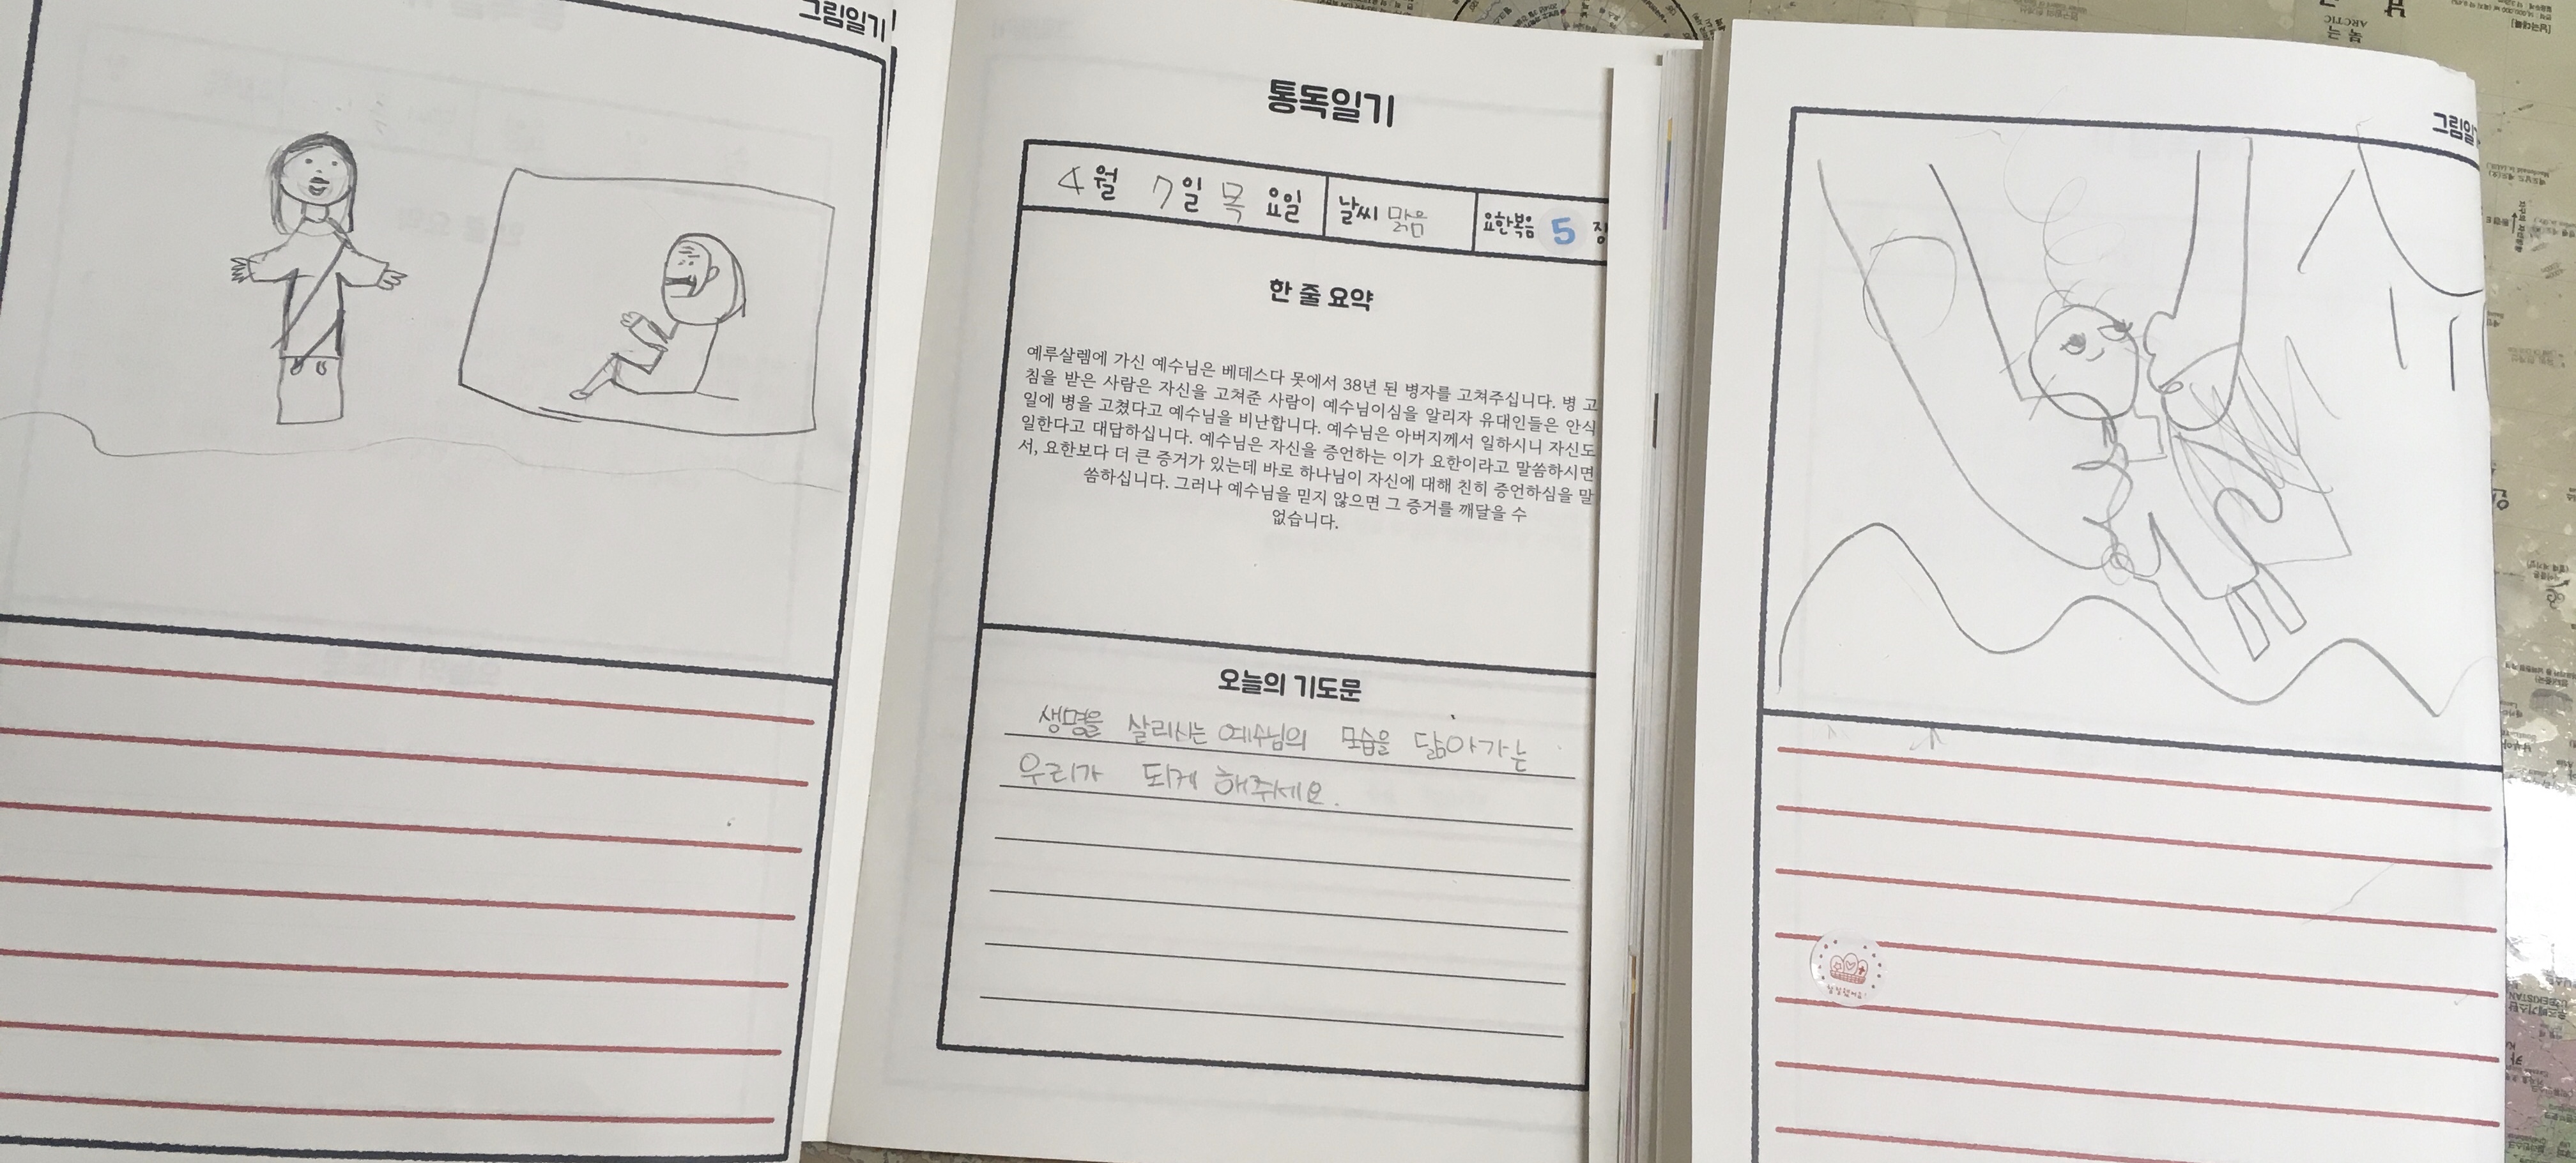 그림일기
통독일기
4월 7일 목요일 날씨 맑음 요한복음 5 장
한 줄 요약
예루살렘에 가신 예수님은 베데스다 못에서 38년 된 병자를 고쳐주십니다. 병 고
침을 받은 사람은 자신을 고쳐준 사람이 예수님이심을 알리자 유대인들은 안식
일에 병을 고쳤다고 예수님을 비난합니다. 예수님은 아버지께서 일하시니 자신도
일한다고 대답하십니다. 예수님은 자신을 증언하는 이가 요한이라고 말씀하시면
서, 요한보다 더 큰 증거가 있는데 바로 하나님이 자신에 대해 친히 증언하심을 말
씀하십니다. 그러나 예수님을 믿지 않으면 그 증거를 깨달을 수
없습니다.
오늘의 기도문
생명을 살리시는 예수님의 모습을 닮아가는
우리가 되게 해주세요.
그림일
참잘했어요!
ARCTIC